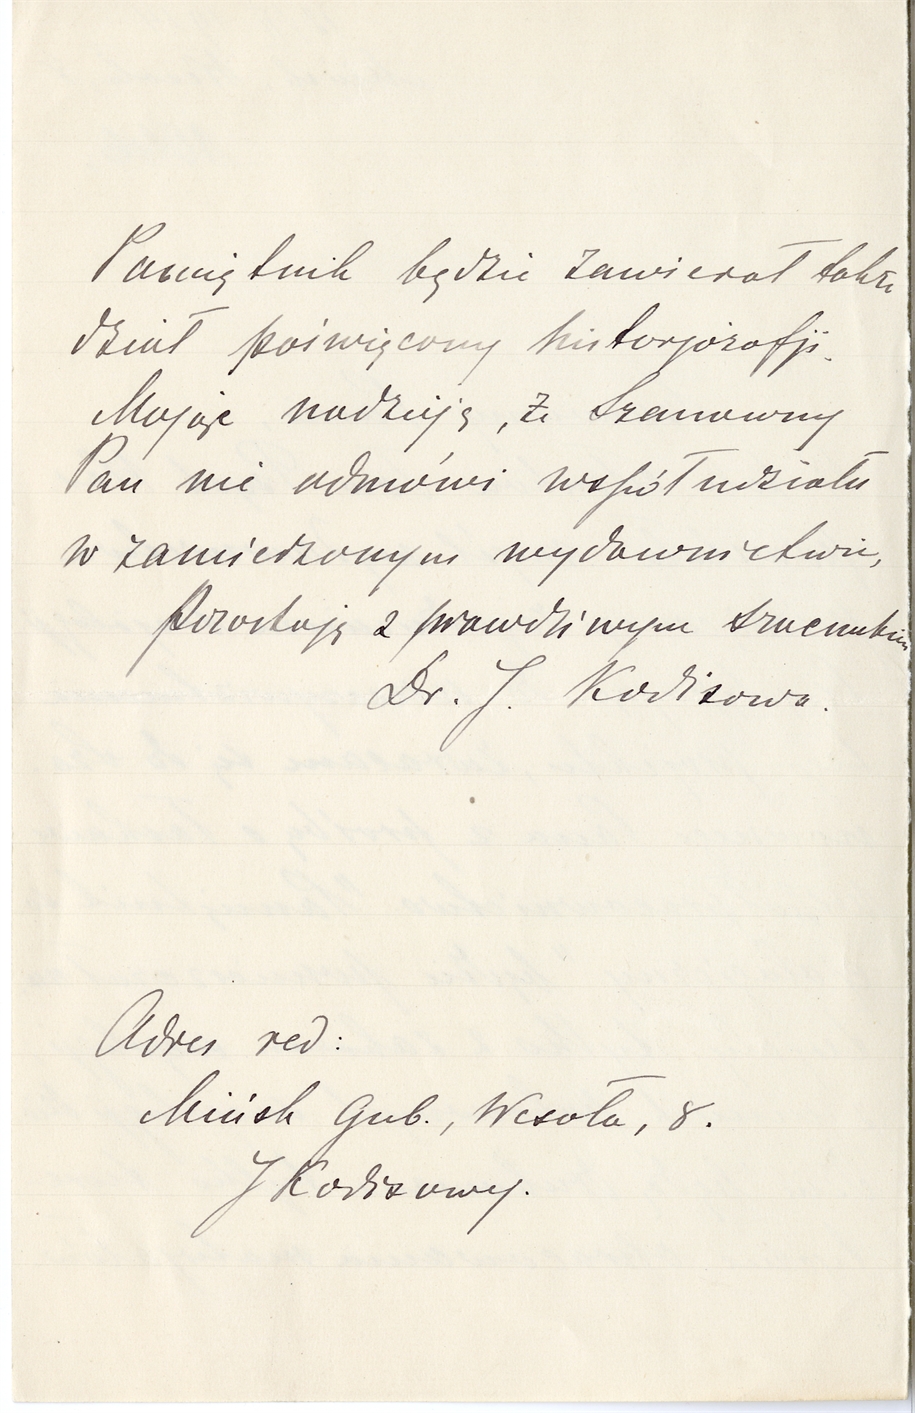 Pamiętnik będzie zawierał także
dział poświęcony historjozofji.
Mając nadzieję, że Szanowny
Pan nie odmówi współudziału
w zamierzonym wydawnictwie,
Pozostaję z prawdziwym szacunkiem
Dr. J. Kodisowa.
Adres red:
Mińsk Gub., Wesoła, 8.
J Kodisowy.